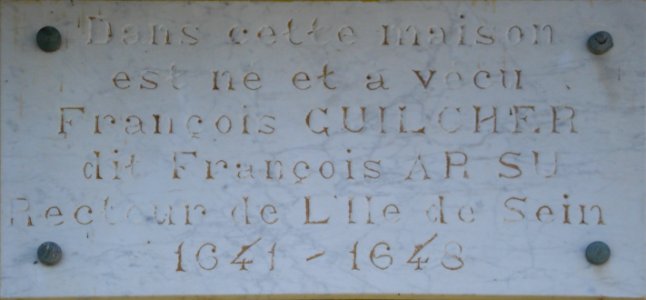 Dans cette maison
est né et a vécu
François GUILCHER
dit François AR SU
Recteur de L'Ile de Sein
1641 - 1648